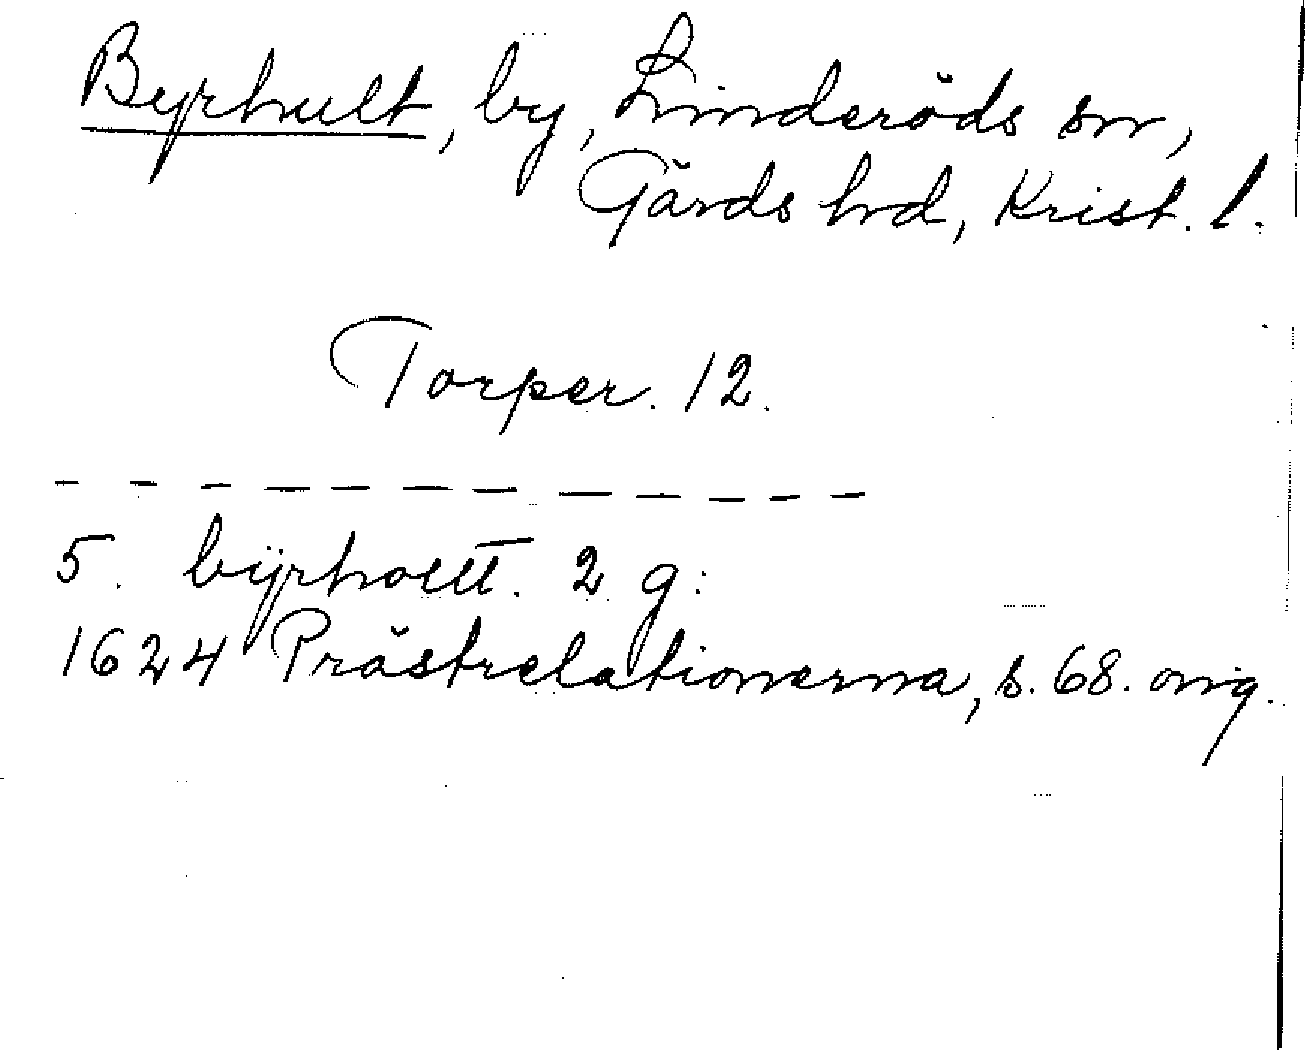 Byrhult, by, Linderöds sn,
Gärds hd, Krist. l.
Torper. 12.
— — — — — — — — — — — —
5. byrholtt. 2 g:
1624 Prästrelationerna, s. 68. orig.